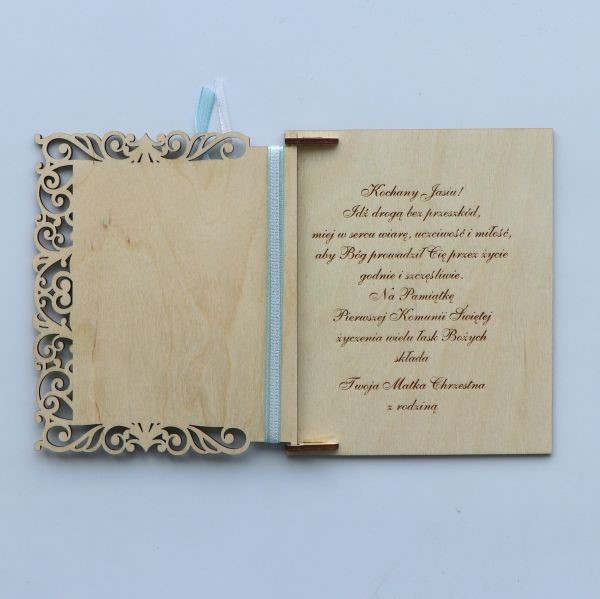 Kochany Jasiu!
Idź drogą bez przeszkód,
miej w sercu wiarę, uczciwość i miłość,
aby Bóg prowadził Cię przez życie
godnie i szczęśliwie.
Na Pamiątkę
Pierwszej Komunii Świętej
życzenia wielu łask Bożych
składa
Twoja Matka Chrzestna
z rodziną